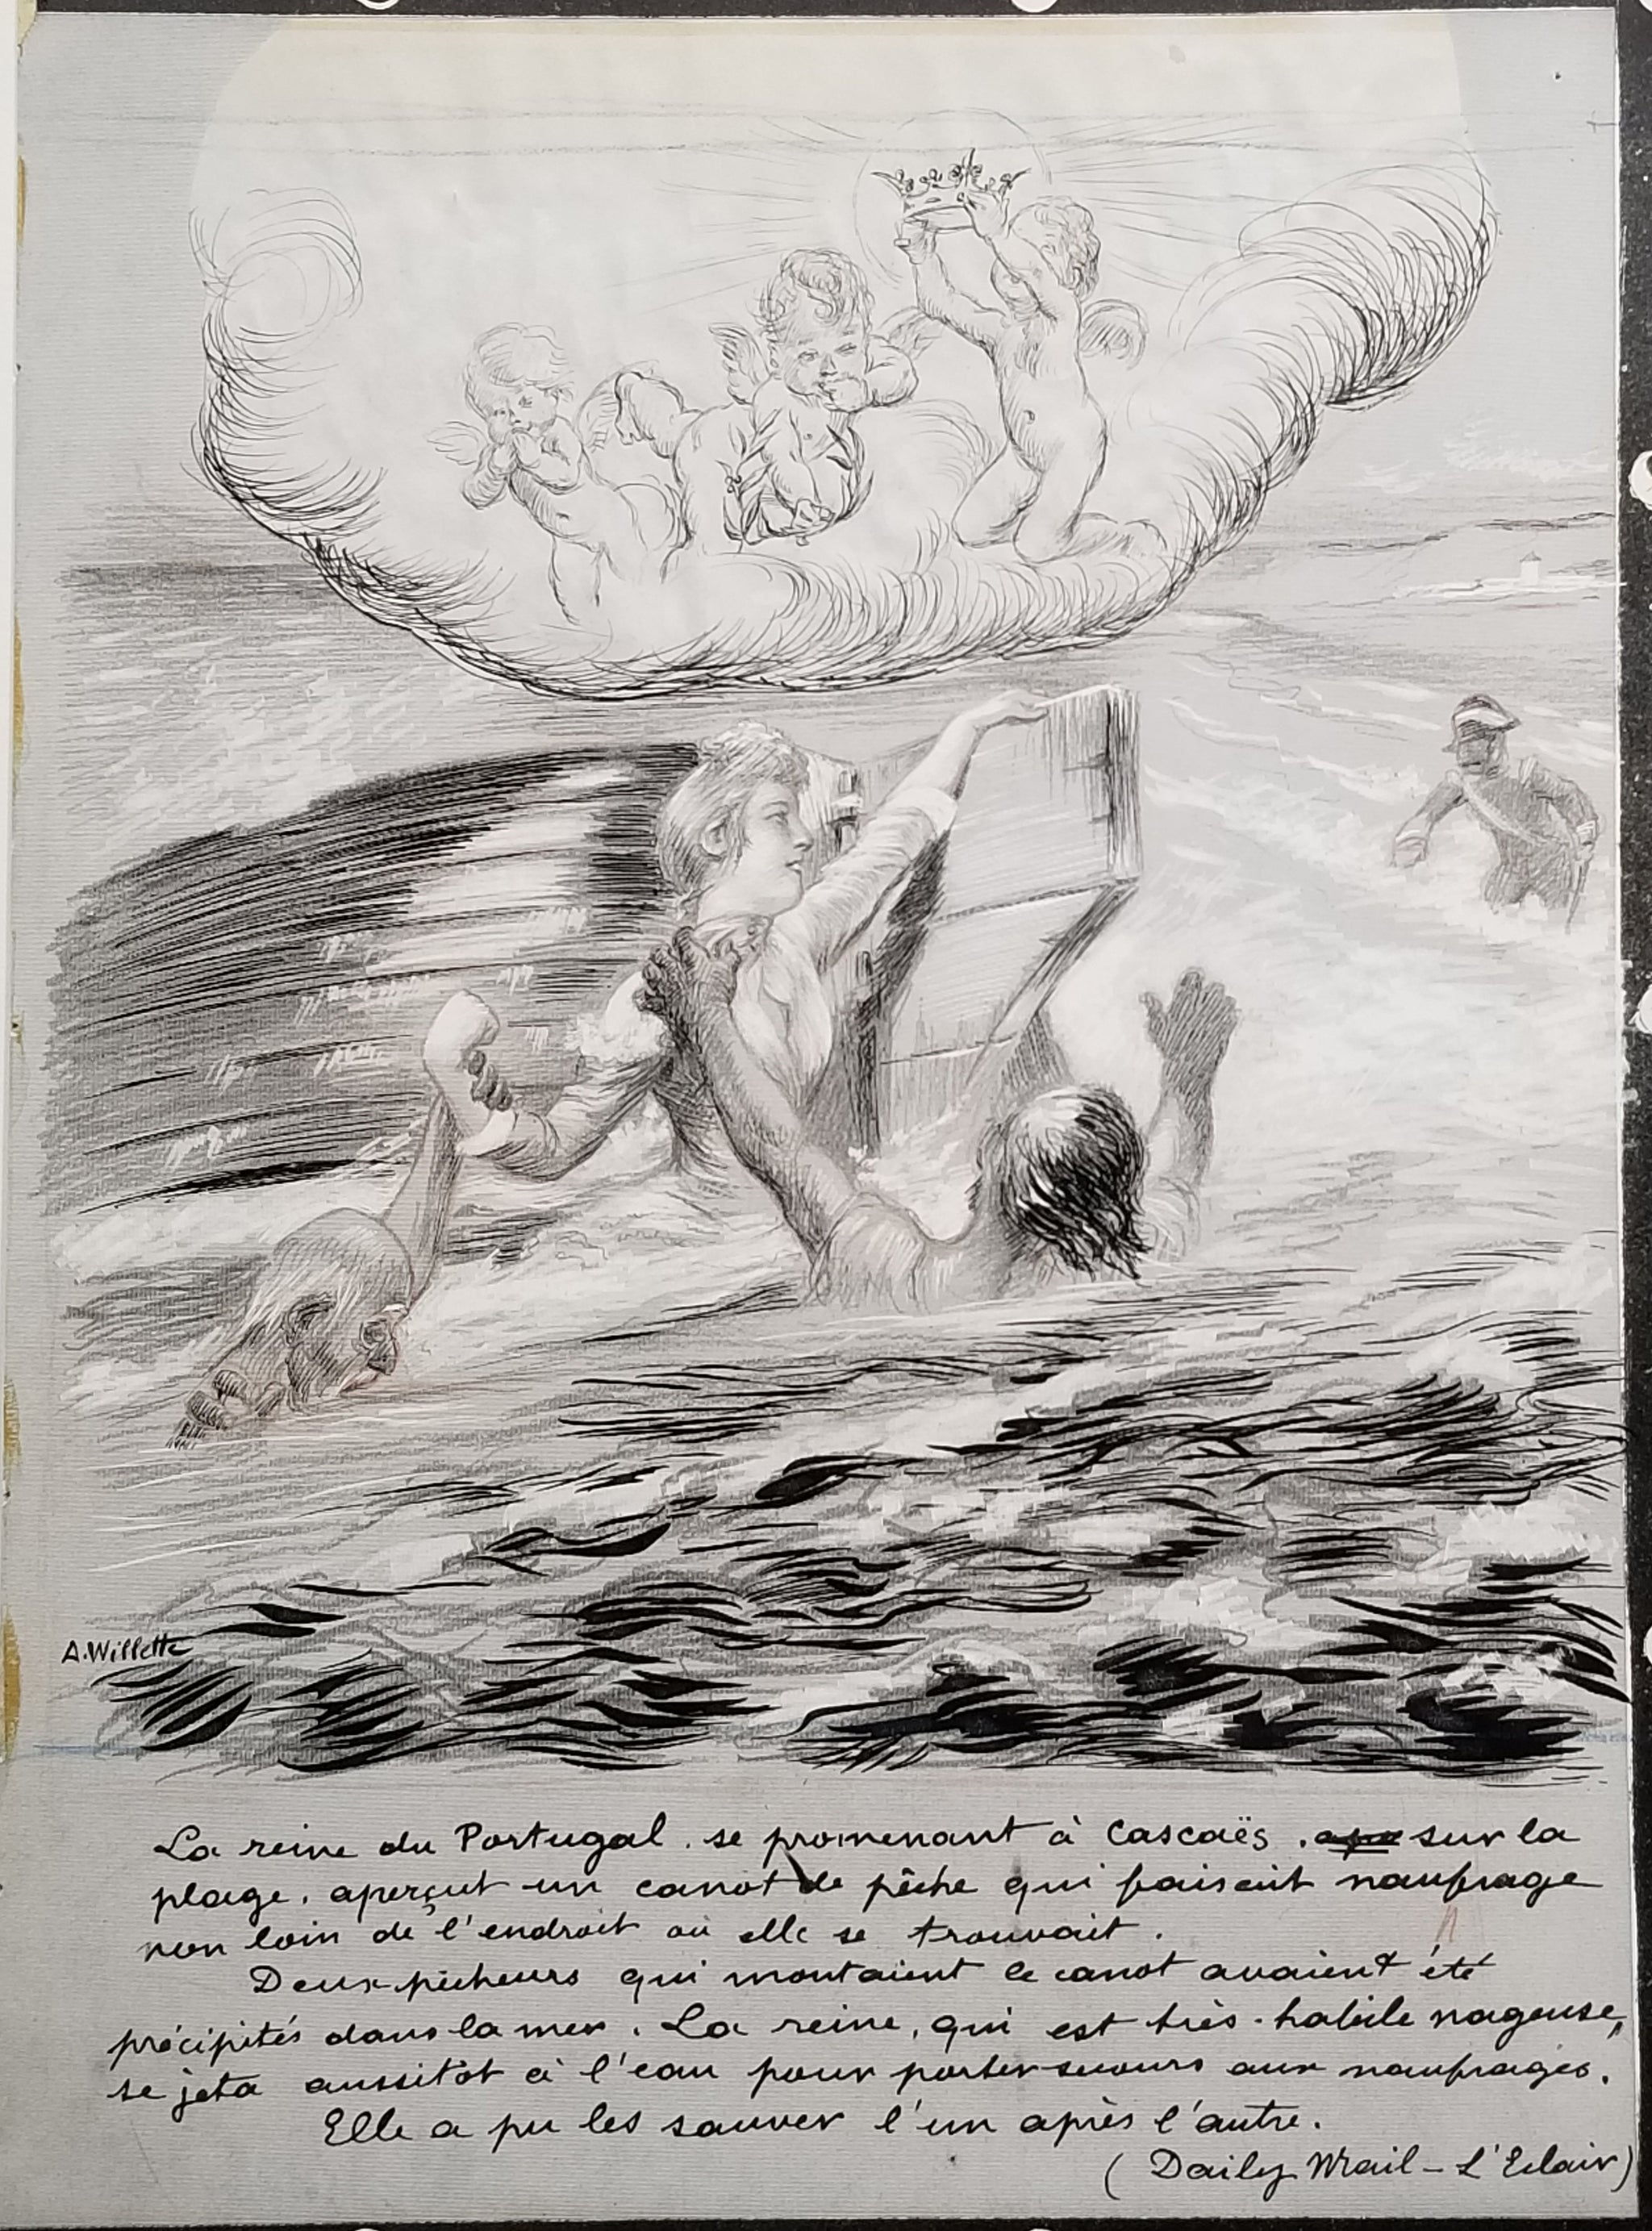 A. Willette
La reine du Portugal. se promenant à Cascaës. sur la
plage. aperçut un canot de pêche qui faisait naufrage
non loin de l'endroit où elle se trouvait.
Deux pêcheurs qui montaient le canot avaient été
précipités dans la mer. La reine, qui est très-habile nageuse,
se jeta aussitôt à l'eau pour porter secours aux naufragés.
Elle a pu les sauver l'un après l'autre.
(Daily Mail - L'Eclair)